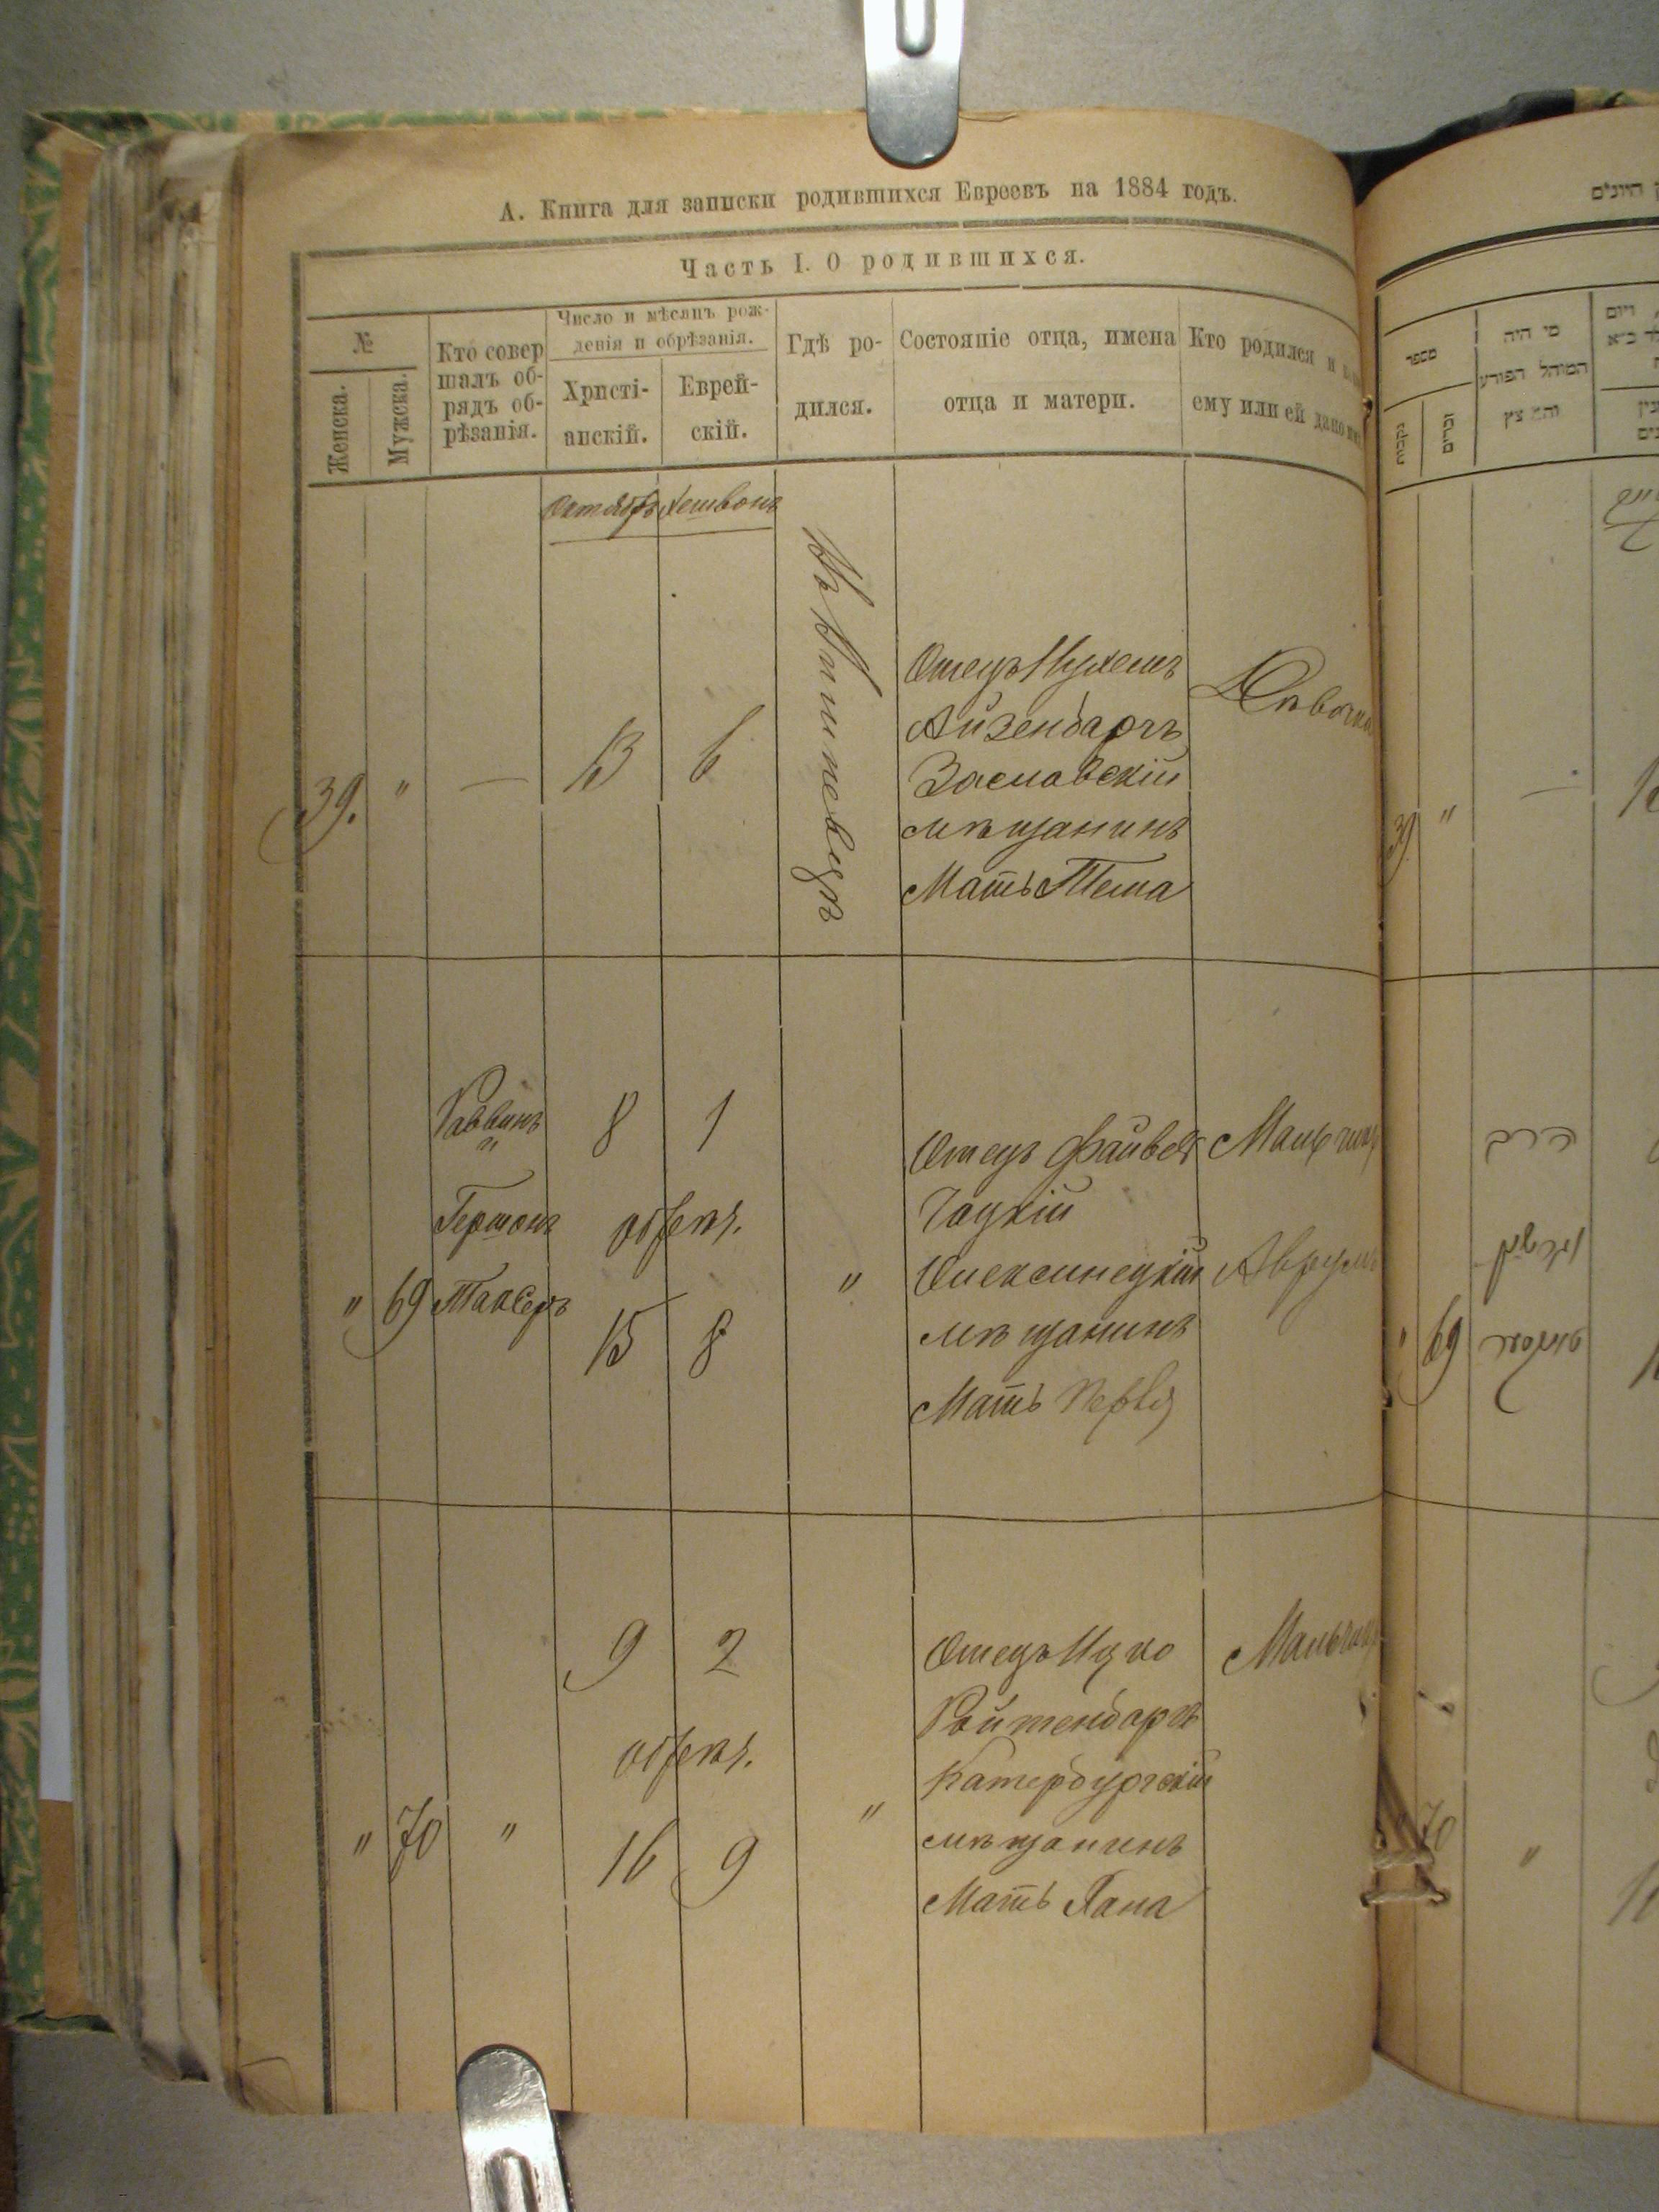 А. Книга для записки родившихся Евреевъ на 1884 годъ.
Часть I. О родившихся.
№
Женска.
Мужска.
Кто совер
шалъ об-
рядъ об-
рѣзанія.
Число и мѣсяцъ рож-
денія и обрѣзанія.
Христі-
анскій.
Еврей-
скій.
Гдѣ ро-
дился.
Состояніе отца, имена
отца и матери.
Кто родился и
ему или ей дано
Октябрь Хешвонъ
39. " — 13 6
Въ Вишневцѣ
Отецъ Нухемъ
Айзенбаргъ
Заславскій
мѣщанинъ
Мать Тема
Дѣвочка
" 69
Раввинъ
"
Гершонъ
Таксеръ
8 1
обрѣз.
15 8
"
Отецъ Файвель
Чацкій
Олексинецкій
мѣщанинъ
Мать Перля
Мальчикъ
Аврумъ
" 70 "
9 2
обрѣз.
16 9
"
Отецъ Ицко
Ройтенбаргъ
Катербургскій
мѣщанинъ
Мать Хана
Мальчикъ
היונים
מספר
נקבות
זכרים
מי היה
המוהל הפורע
ויום
39 " —
הרב
69
70 "